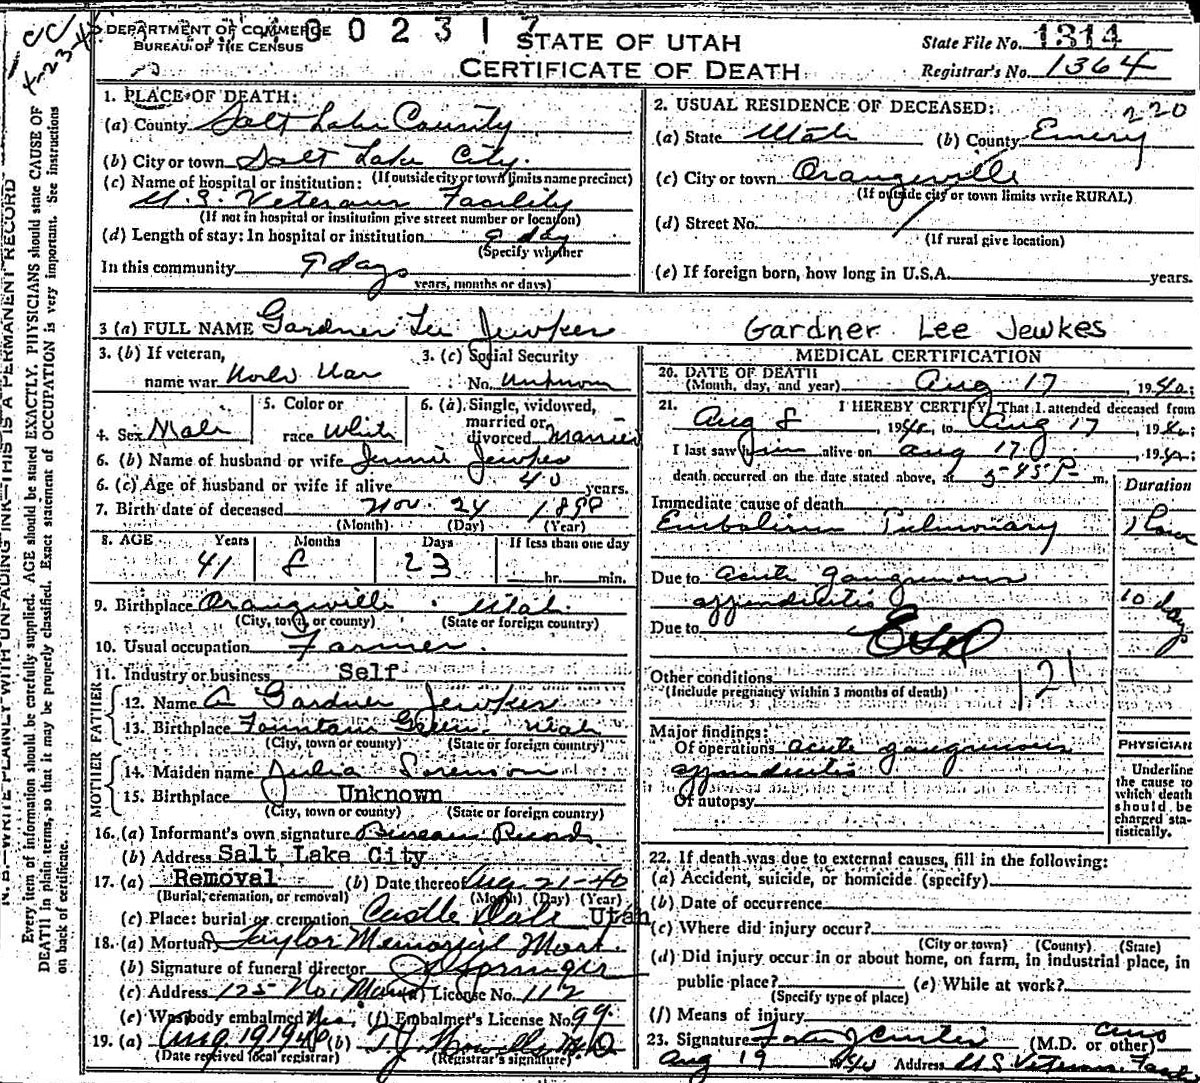 DEPARTMENT OF COMMERCE
BUREAU OF THE CENSUS
002317
STATE OF UTAH
CERTIFICATE OF DEATH
State File No. 1314
Registrar's No. 1364
N. B.—WRITE PLAINLY WITH UNFADING INK—THIS IS A PERMANENT RECORD
Every item of information should be carefully supplied. AGE should be stated EXACTLY. PHYSICIANS should state CAUSE OF
DEATH in plain terms, so that it may be properly classified. Exact statement of OCCUPATION is very important. See instructions
on back of certificate.
1. PLACE OF DEATH:
(a) County Salt Lake County
(b) City or town Salt Lake City.
(If outside city or town limits name precinct)
(c) Name of hospital or institution:
U.S. Veterans Facility
(If not in hospital or institution give street number or location)
(d) Length of stay: In hospital or institution 9 day
(Specify whether
In this community 9 days
years, months or days)
2. USUAL RESIDENCE OF DECEASED: 220
(a) State Utah (b) County Emery
(c) City or town Orangeville
(If outside city or town limits write RURAL)
(d) Street No.
(If rural give location)
(e) If foreign born, how long in U.S.A. years.
3 (a) FULL NAME Gardner Lee Jewkes Gardner Lee Jewkes
3. (b) If veteran,
name war World War
3. (c) Social Security
No. Unknown
4. Sex Male
5. Color or
race White
6. (a) Single, widowed,
married or
divorced Married
6. (b) Name of husband or wife Jennie Jewkes
6. (c) Age of husband or wife if alive 40 years.
7. Birth date of deceased Nov. 24 1898
(Month) (Day) (Year)
8. AGE Years Months Days If less than one day
41 8 23 hr. min.
9. Birthplace Orangeville Utah.
(City, town, or county) (State or foreign country)
10. Usual occupation Farmer.
11. Industry or business Self
FATHER
12. Name A Gardner Jewkes
13. Birthplace Fountain Green Utah
(City, town or county) (State or foreign country)
MOTHER
14. Maiden name Julia Sorenson
15. Birthplace Unknown
(City, town or county) (State or foreign country)
16. (a) Informant's own signature Bureau Records
(b) Address Salt Lake City
17. (a) Removal (b) Date thereof Aug 21-40
(Burial, cremation, or removal) (Month) (Day) (Year)
(c) Place: burial or cremation Castle Dale Utah
18. (a) Mortuary Taylor Memorial Mort.
(b) Signature of funeral director Springer
(c) Address 125 No. Main (d) License No. 112
(e) Was body embalmed Yes (f) Embalmer's License No. 99.
19. (a) Aug 19 1940 (b) T.J. Howells M.D
(Date received local registrar) (Registrar's signature)
MEDICAL CERTIFICATION
20. DATE OF DEATH
(Month, day, and year) Aug 17, 1940.
21. I HEREBY CERTIFY, That I attended deceased from
Aug 8, 1940, to Aug 17, 1940;
I last saw him alive on Aug 17, 1940;
death occurred on the date stated above, at 5-45 P. m.
Duration
Immediate cause of death
Embolism Pulmonary 1 hour
Due to acute gangrenous
appendicitis 10 days
Due to
Other conditions 121
(Include pregnancy within 3 months of death)
Major findings:
Of operations acute gangrenous
appendicitis
Of autopsy
PHYSICIAN
Underline
the cause to
which death
should be
charged sta-
tistically.
22. If death was due to external causes, fill in the following:
(a) Accident, suicide, or homicide (specify)
(b) Date of occurrence
(c) Where did injury occur?
(City or town) (County) (State)
(d) Did injury occur in or about home, on farm, in industrial place, in
public place? (e) While at work?
(Specify type of place)
(f) Means of injury
23. Signature Foster J Curtis (M.D. or other)
Aug 19 1940 Address U.S Veterans Facil.